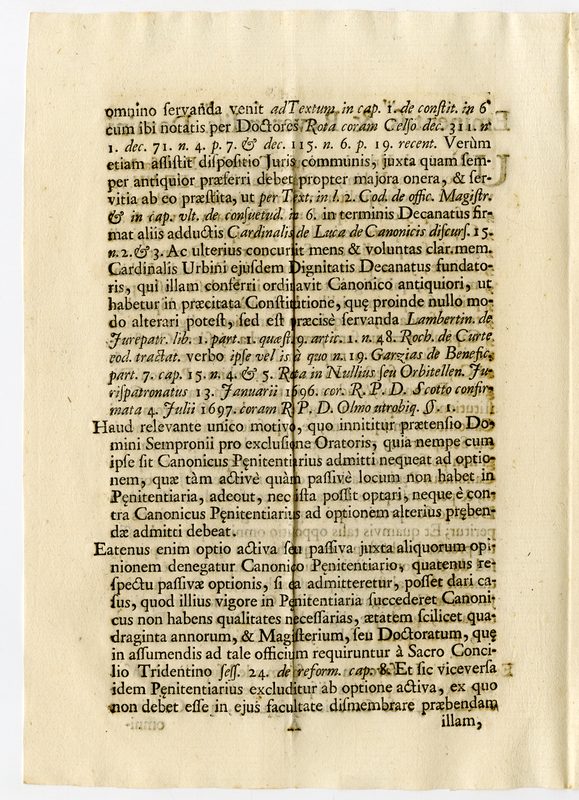 omnino servanda venit ad Textum in cap. 1. de constit. in 6
cum ibi notatis per Doctores Rota coram Celso dec. 311. n.
1. dec. 71. n. 4. p. 7. & dec. 115. n. 6. p. 19. recent. Verùm
etiam assistit dispositio Juris communis, juxta quam sem-
per antiquior præferri debet propter majora onera, & ser-
vitia ab eo præstita, ut per Text. in l. 2. Cod. de offic. Magistr.
& in cap. vlt. de consuetud. in 6. in terminis Decanatus fir-
mat aliis adductis Cardinalis de Luca de Canonicis discurs. 15.
n. 2. & 3. Ac ulterius concurrit mens & voluntas clar. mem.
Cardinalis Urbini ejusdem Dignitatis Decanatus fundato-
ris, qui illam conferri ordinavit Canonico antiquiori, ut
habetur in præcitata Constitutione, quę proinde nullo mo-
do alterari potest, sed est præcisè servanda Lambertin. de
Jurepatr. lib. 1. part. 1. quæst. 9. artic. 1. n. 48. Roch. de Curte
eod. tractat. verbo ipse vel is à quo n. 19. Garzias de Benefic.
part. 7. cap. 15. n. 4. & 5. Rota in Nullius seu Orbitellen. Ju-
rispatronatus 13. Januarii 1696. cor. R. P. D. Scotto confir-
mata 4. Julii 1697. coram R. P. D. Olmo utrobiq. §. 1.
Haud relevante unico motivo, quo innititur prætensio Do-
mini Sempronii pro exclusione Oratoris, quia nempe cum
ipse sit Canonicus Pęnitentiarius admitti nequeat ad optio-
nem, quæ tàm activè quàm passivè locum non habet in
Pęnitentiaria, adeout, nec ista possit optari, neque è con-
tra Canonicus Pęnitentiarius ad optionem alterius pręben-
dæ admitti debeat.
Eatenus enim optio activa seu passiva juxta aliquorum opi-
nionem denegatur Canonico Pęnitentiario, quatenus re-
spectu passivæ optionis, si ea admitteretur, posset dari ca-
sus, quod illius vigore in Pęnitentiaria succederet Canoni-
cus non habens qualitates necessarias, ætatem scilicet qua-
draginta annorum, & Magisterium, seu Doctoratum, quę
in assumendis ad tale officium requiruntur à Sacro Conci-
lio Tridentino sess. 24. de reform. cap. 8. Et sic viceversa
idem Pęnitentiarius excluditur ab optione activa, ex quo
non debet esse in ejus facultate dismembrare præbendam
illam,